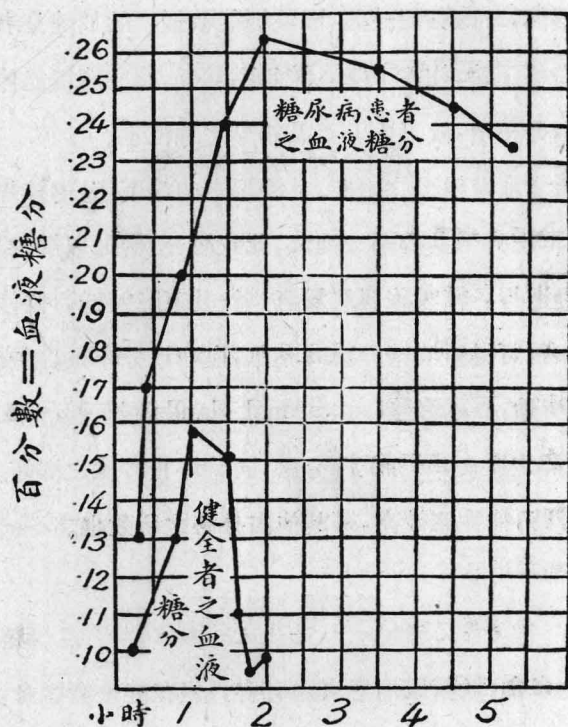 百分數=血液糖分
.26
.25
.24
.23
.22
.21
.20
.19
.18
.17
.16
.15
.14
.13
.12
.11
.10
糖尿病患者
之血液糖分
健全者之血液
糖分
小時 1 2 3 4 5